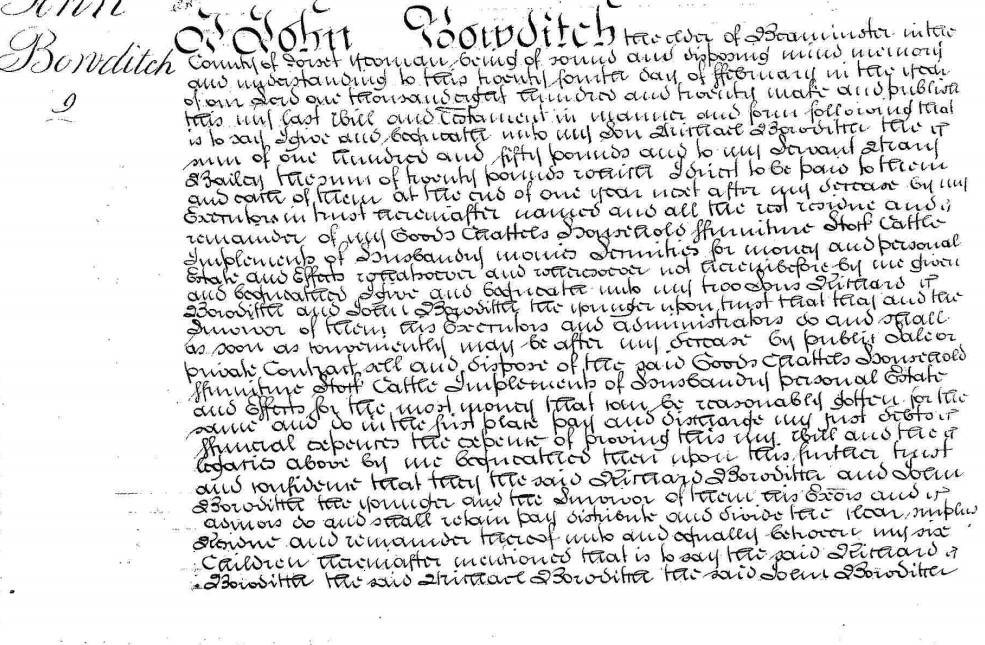 Ann
Bowditch
9
I John Bowditch the elder of Beaminster in the
County of Dorset Yeoman being of sound and disposing mind memory
and understanding do this twenty fourth day of ffebruary in the year
of our Lord one thousand eight hundred and twenty make and publish
this my last Will and Testament in manner and form following that
is to say I give and bequeath unto my Son Michael Bowditch the
sum of one hundred and fifty pounds and to my Servant Mary
Bailey the sum of twenty pounds which I direct to be paid to them
and each of them at the end of one year next after my decease by my
Executors in trust hereinafter named and all the rest residue and
remainder of my Goods Chattels Household ffurniture Stock Cattle
Implements of Husbandry monies Securities for money and personal
Estate and Effects whatsoever and wheresoever not hereinbefore by me given
and bequeathed I give and bequeath unto my two Sons Richard
Bowditch and John Bowditch the younger upon trust that they and the
Survivor of them his Executors and administrators do and shall
as soon as conveniently may be after my decease by public Sale or
private Contract sell and dispose of the said Goods Chattels Household
ffurniture Stock Cattle Implements of Husbandry personal Estate
and Effects for the most money that can be reasonably gotten for the
same and do in the first place pay and discharge my just debts
ffuneral expences the expence of proving this my Will and the
legacies above by me bequeathed then upon this further trust
and confidence that they the said Richard Bowditch and John
Bowditch the younger and the Survivor of them his Exors and
admors do and shall retain pay distribute and divide the clear surplus
Residue and remainder thereof unto and equally between my six
Children hereinafter mentioned that is to say the said Richard
Bowditch the said Michael Bowditch the said John Bowditch